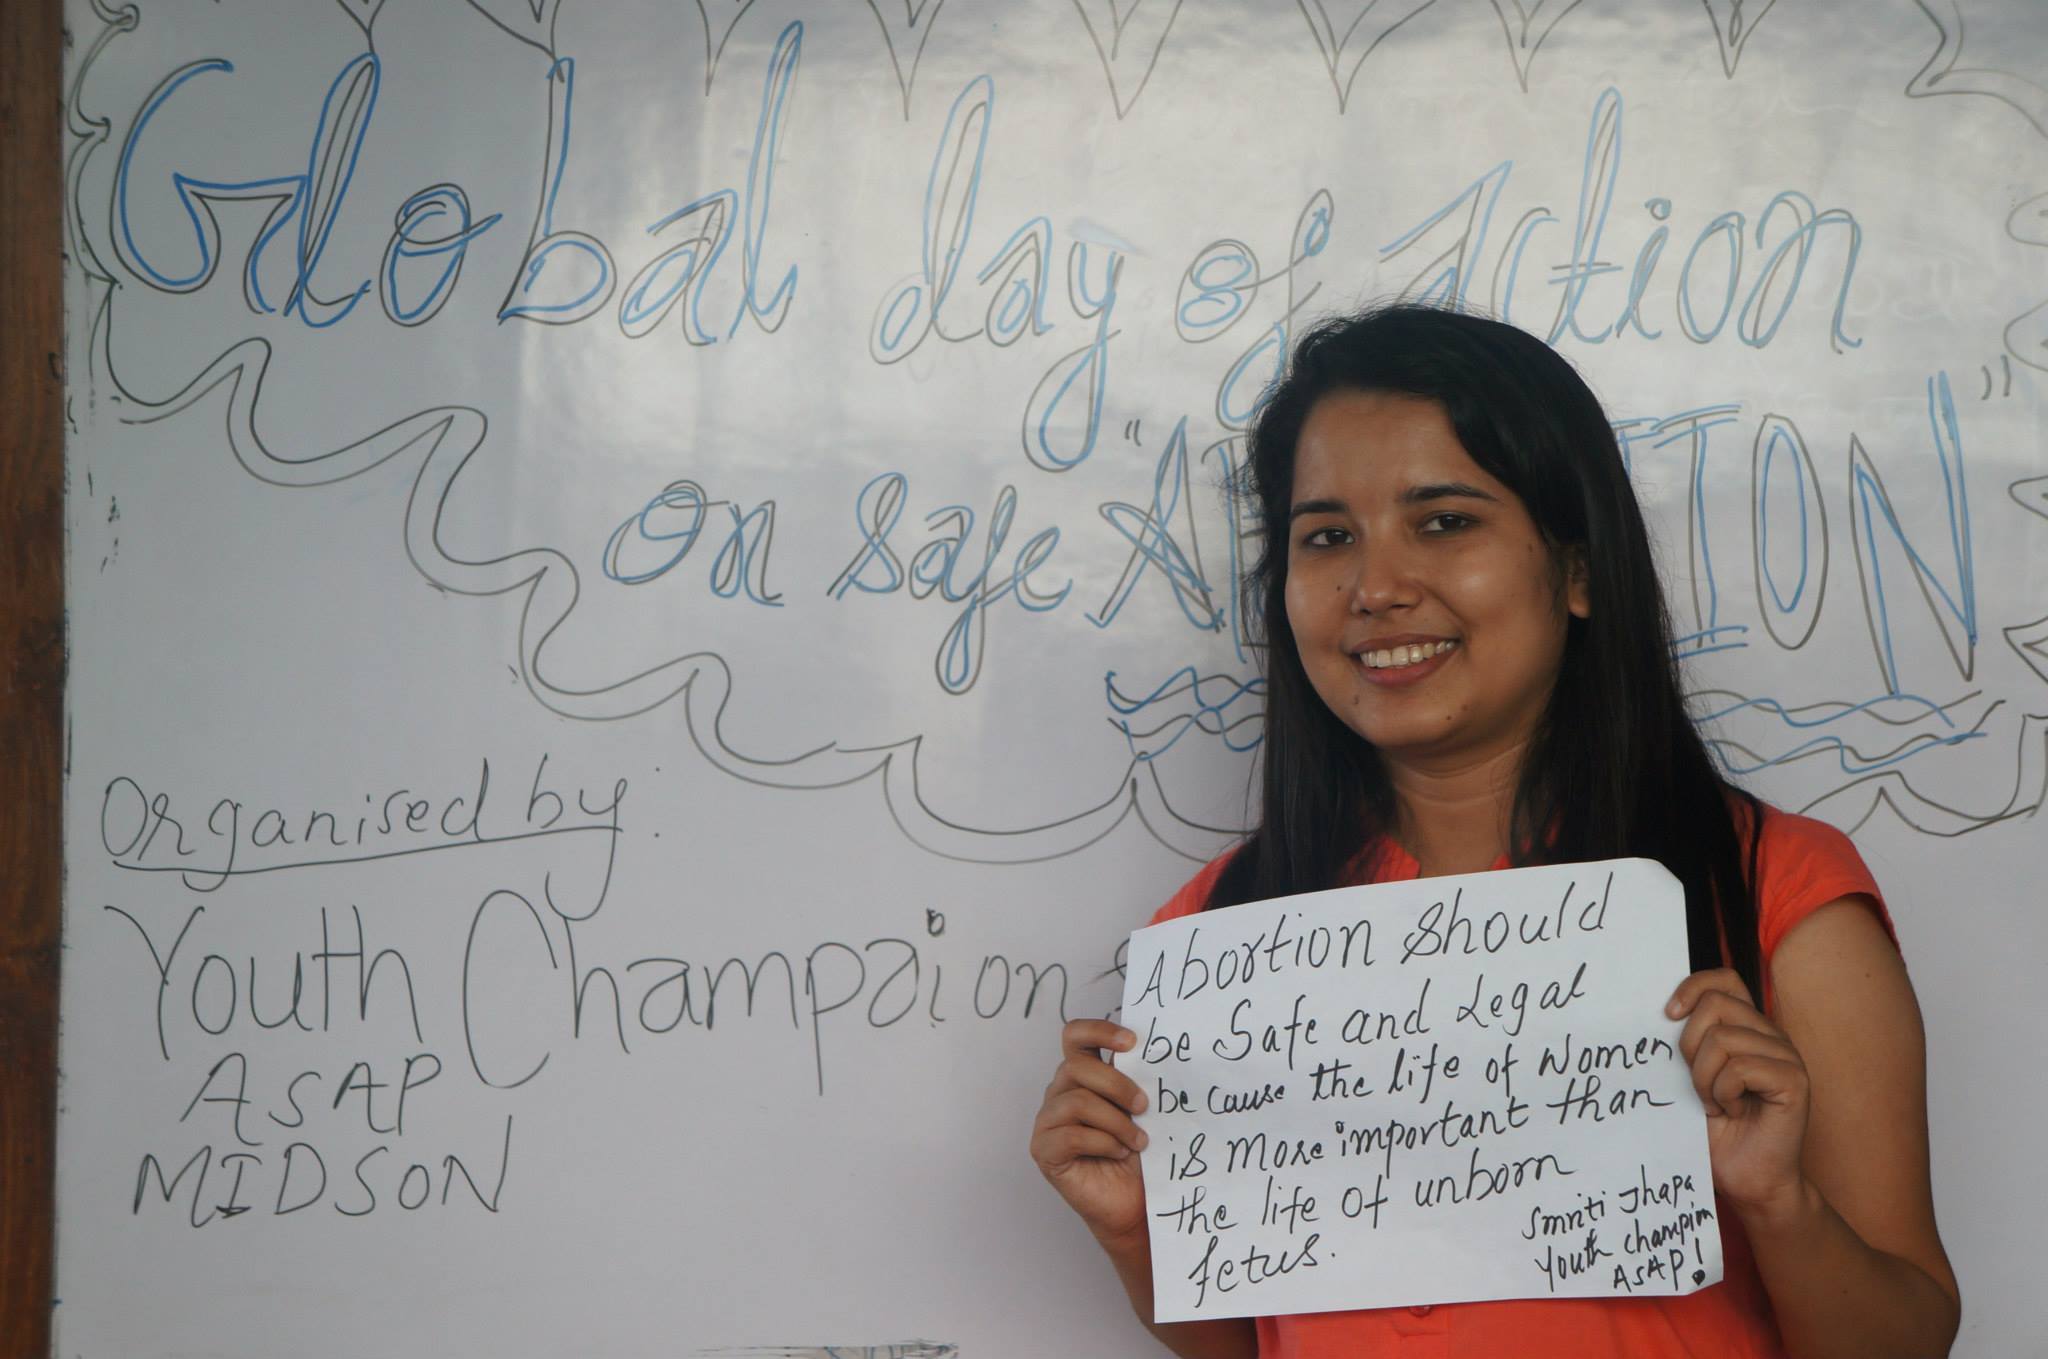 Global day of action
on safe "ABORTION"
Organised by:
Youth Champaions
ASAP
MIDSON
Abortion should
be Safe and Legal
because the life of women
is more important than
the life of unborn
fetus.
Smriti Thapa
Youth champion
ASAP!